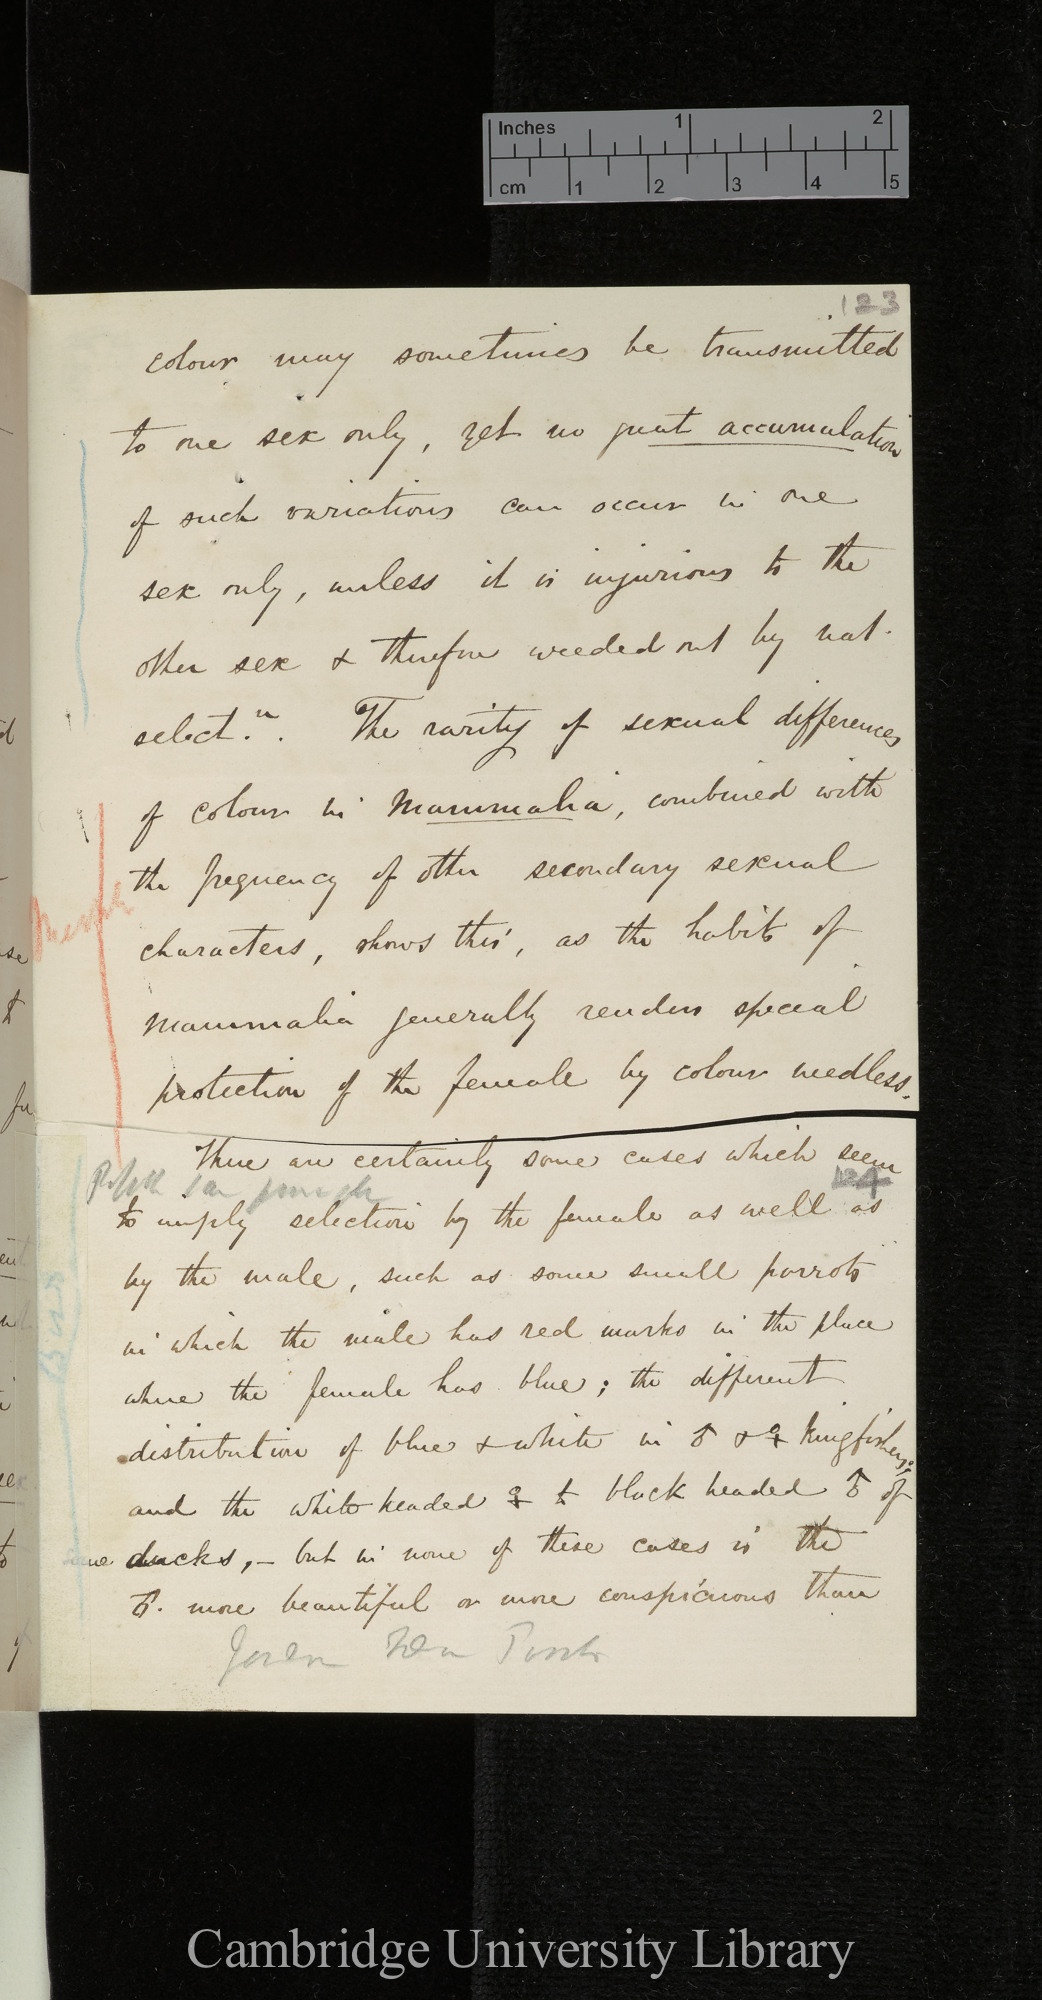 Inches 1 2
cm 1 2 3 4 5
123
colour may sometimes be transmitted
to one sex only, yet no great accumulation
of such variations can occur in one
sex only, unless it is injurious to the
other sex & therefore weeded out by nat.
select.n. The rarity of sexual differences
of colour in Mammalia, combined with
the frequency of other secondary sexual
characters, shows this, as the habits of
Mammalia generally renders special
protection of the female by colour needless.
There are certainly some cases which seem
124
to imply selection by the female as well as
by the male, such as some small parrots
in which the male has red marks in the place
where the female has blue; the different
distribution of blue & white in ♂ & ♀ Kingfishers;
and the white headed ♀ & black headed ♂ of
some ducks,- but in none of these cases is the
♂. more beautiful or more conspicuous than
Cambridge University Library